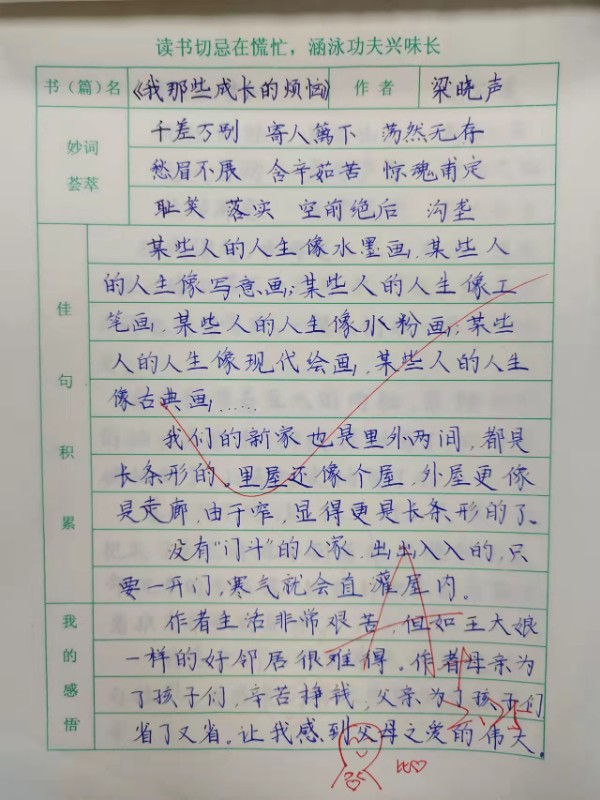 读书切忌在慌忙，涵泳功夫兴味长
书（篇）名 《我那些成长的烦恼》 作者 梁晓声
妙词荟萃
千差万别 寄人篱下 荡然无存
愁眉不展 含辛茹苦 惊魂甫定
耻笑 落实 空前绝后 沟壑
佳句积累
某些人的人生像水墨画，某些人
的人生像写意画；某些人的人生像工
笔画，某些人的人生像水粉画；某些
人的人生像现代绘画，某些人的人生
像古典画……
我们的新家也是里外两间，都是
长条形的。里屋还像个屋，外屋更像
是走廊，由于窄，显得更是长条形的了。
没有“门斗”的人家，出出入入的，只
要一开门，寒气就会直灌屋内。
我的感悟
作者生活非常艰苦，但如王大娘
一样的好邻居很难得。作者母亲为
了孩子们，辛苦挣钱，父亲为了孩子们
省了又省。让我感到父母之爱的伟大。